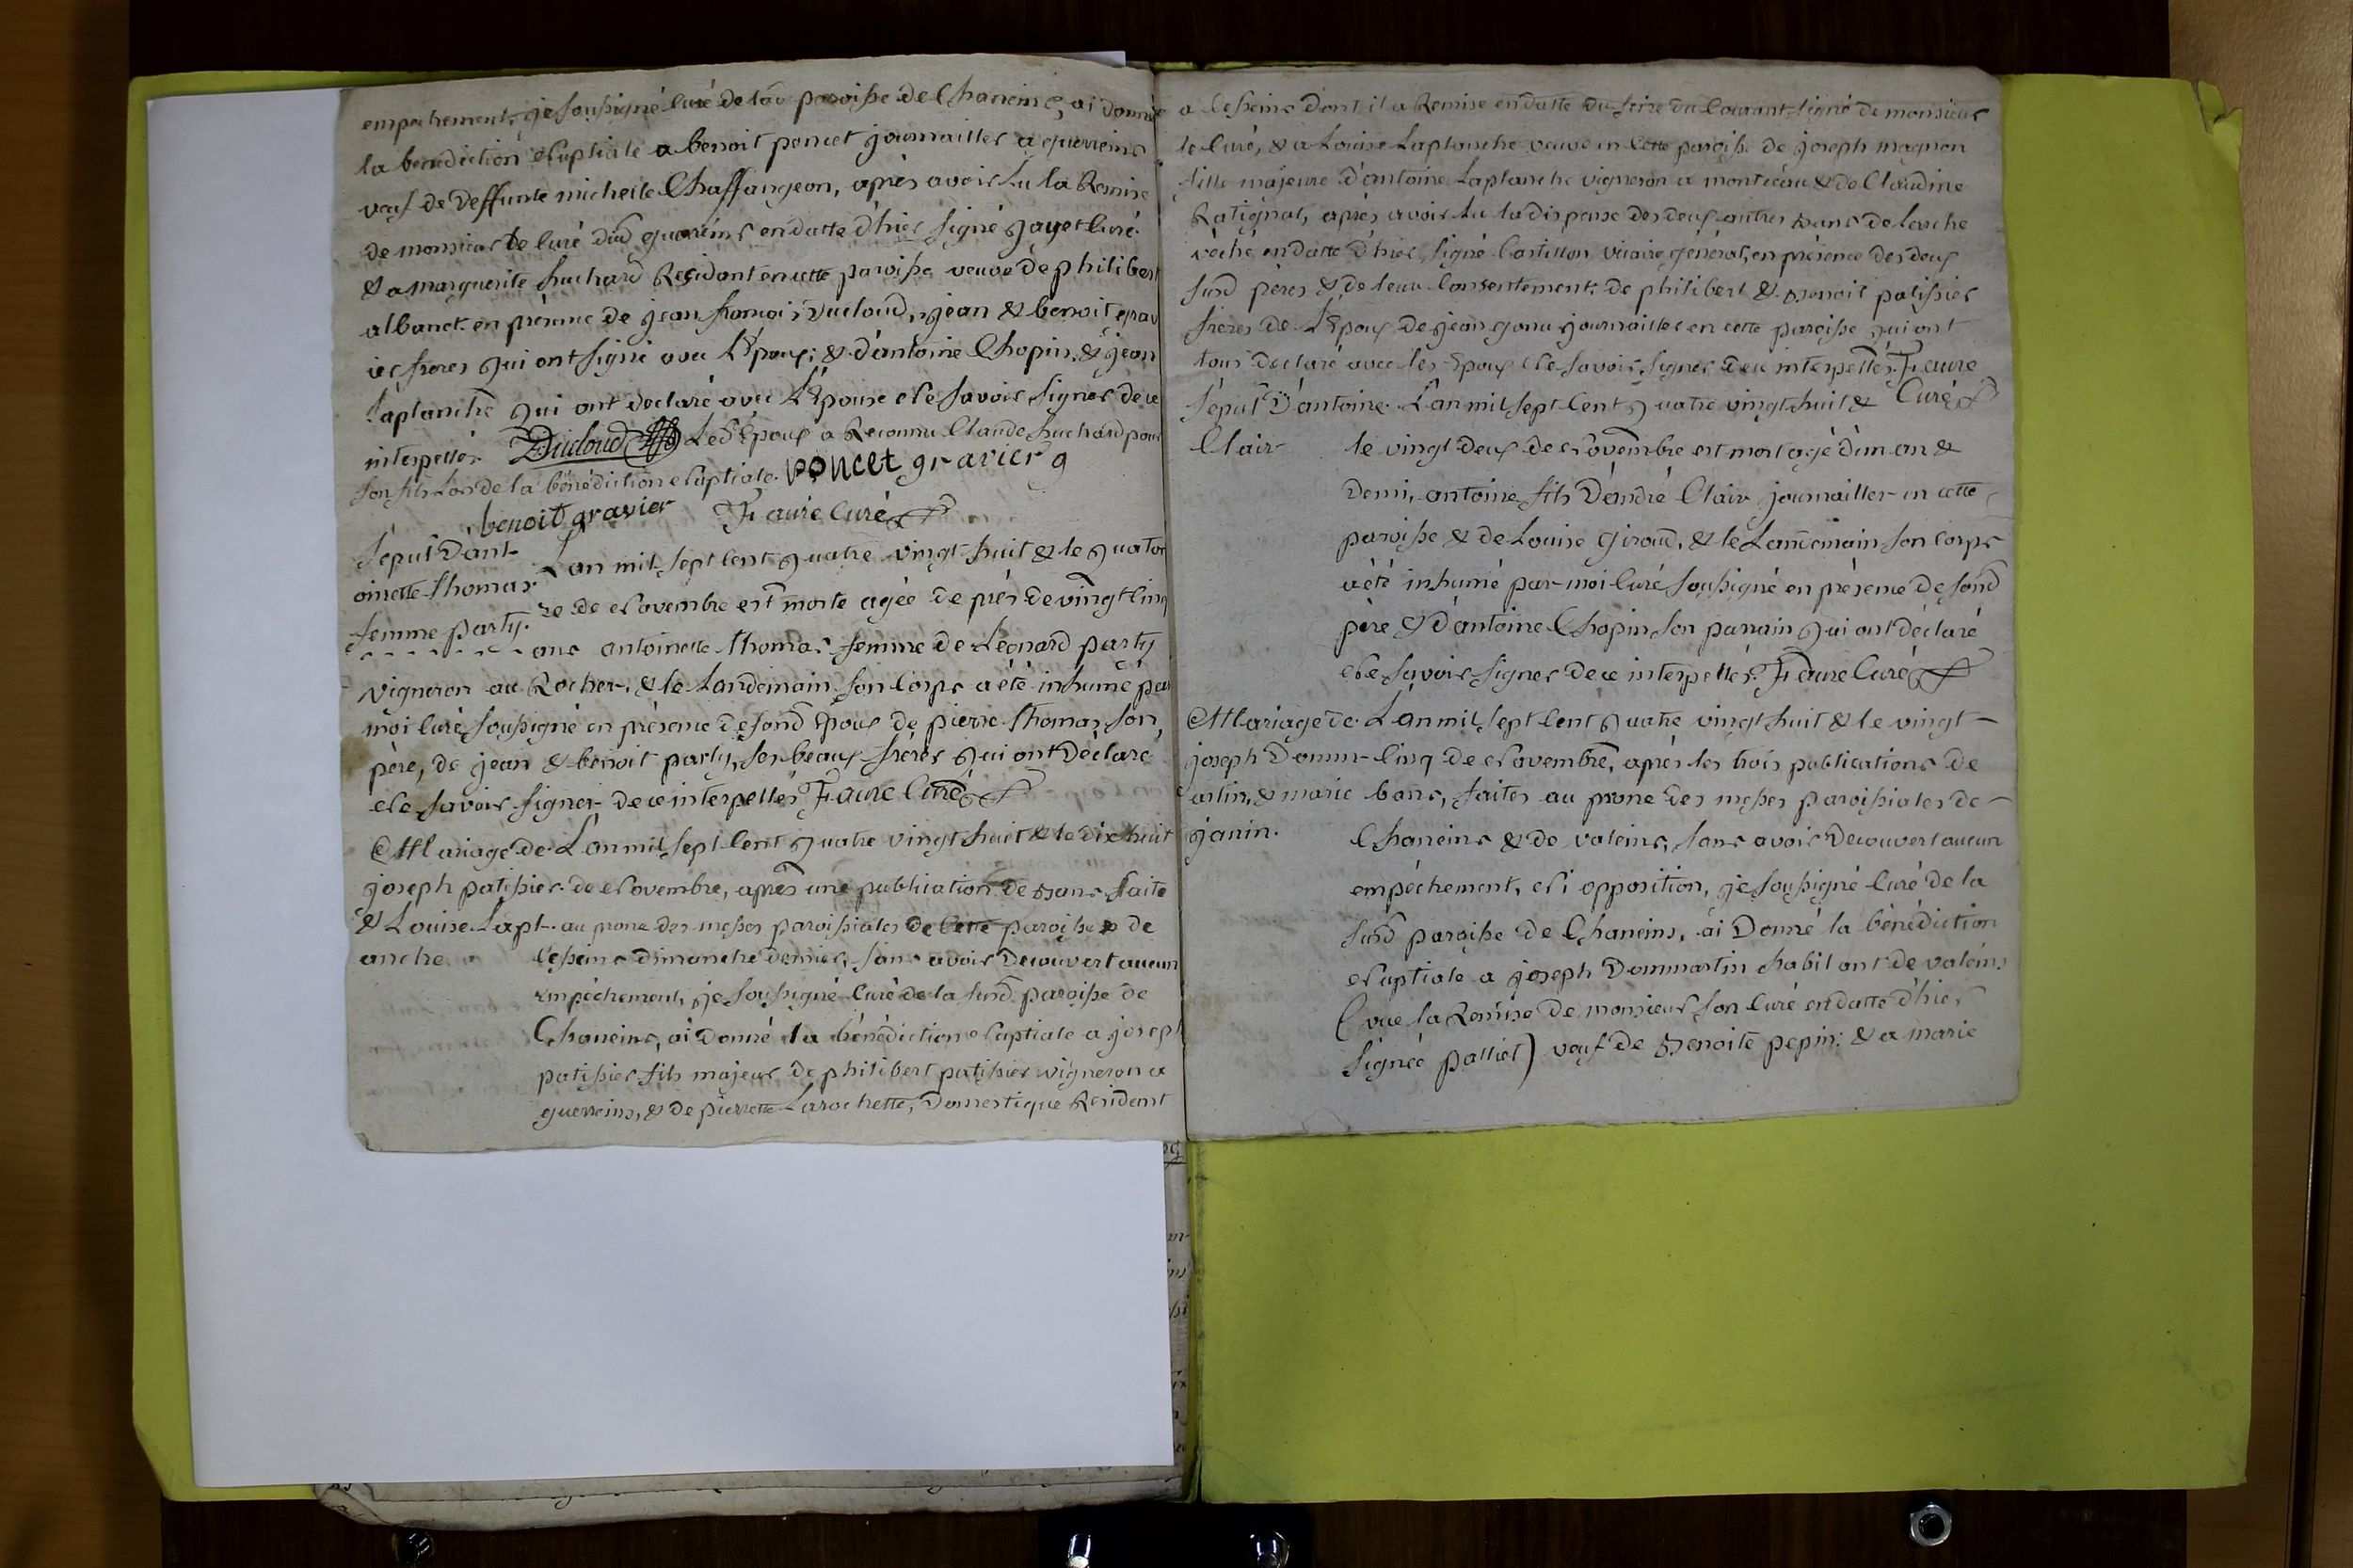 empechement, je soussigné curé de lad paroisse de Chaneins, ai donné
la benediction Nuptiale a benoit poncet journailler a guerreins
veuf de deffunte michelle Chaffangeon, après avoir lu la Remise
de monsieur le curé dud guereins en datte d'hier signé jayet curé.
& a marguerite huchard Residant en cette paroisse veuve de philibert
albanet. en présence de jean francois ducloud, jean & benoit grav
ier freres qui ont signé avec l'Epoux; & d'antoine Chopin, & jean
Laplanche qui ont declaré avec l'Epouse Ne savoir signer de ce
interpellés. Ducloud Led Epoux a Reconnu Claude huchard pour
son fils lors de la bénédiction Nuptiale. poncet gravier g
benoit gravier Faure Curé
Sepult D'ant-
oinette thomas
femme party.
L'an mil sept cent quatre vingt huit & le quator
ze de Novembre est morte agée de près de vingt cinq
ans antoinette thomas femme de Léonard party
vigneron au Rocher, & le Landemain son corps a été inhumé par
moi curé soussigné en présence de sond Epoux de pierre thomas son
père, de jean & benoit party, ses beaux frères qui ont déclaré
Ne savoir signer de ce interpellés Faure Curé
Mariage de L'an mil sept cent quatre vingt huit & le dix huit
joseph patissier de Novembre, après une publication de Bans faite
& Louise Lapl- au prone des messes paroissiales de Cette paroisse & de
anche Cesseins dimanche dernier, sans avoir decouvert aucun
empéchement, je soussigné curé de la susd paroisse de
Chaneins, ai donné la bénédiction Nuptiale a joseph
patissier fils majeur de philibert patissier vigneron a
guerreins, & de pierrette Larochette, Domestique Résidant
a Cesseins dont il a Remise en datte du seize du Courant signé de monsieur
le Curé, & a Louise Laplanche veuve en Cette paroisse de joseph magnon
fille majeure d'antoine Laplanche vigneron a montceau & de Claudine
Ratignat, après avoir lu la dispense des deux autres Bans de l'arche
véché en datte d'hier, signé Castillon vicaire général, en présence des deux
susd pères & de leur Consentement, de philibert & Benoit patissier
frères de L'Epoux de jean gonu journailler en cette paroisse, qui ont
tous declaré avec les Epoux Ne savoir signer de ce interpellés. Faure
Curé
Sépult D'antoine L'an mil sept Cent quatre vingt huit &
Clair le vingt deux de Novembre est mort agé d'un an &
demi, antoine fils D'andré Clair journailler en cette
paroisse & de Louise giroud, & le Landemain son corps
a été inhumé par moi curé soussigné en présence de sond
père & d'antoine Chopin son parrain qui ont déclaré
Ne savoir signer de ce interpellés. Faure Curé
Mariage de L'an mil sept Cent quatre vingt huit & le vingt-
joseph Domm- cinq de Novembre, après les trois publications de
artin, & marie bans, faites au prone des messes paroissiales de
janin. Chaneins & de valeins, sans avoir decouvert aucun
empéchement, Ni opposition, je soussigné curé de la
susd paroisse de Chaneins, ai Donné la bénédiction
Nuptiale a joseph Dommartin habitant de valeins
(vue la Remise de monsieur son Curé en datte d'hier
signée palliet) veuf de Benoite pepin; & a marie